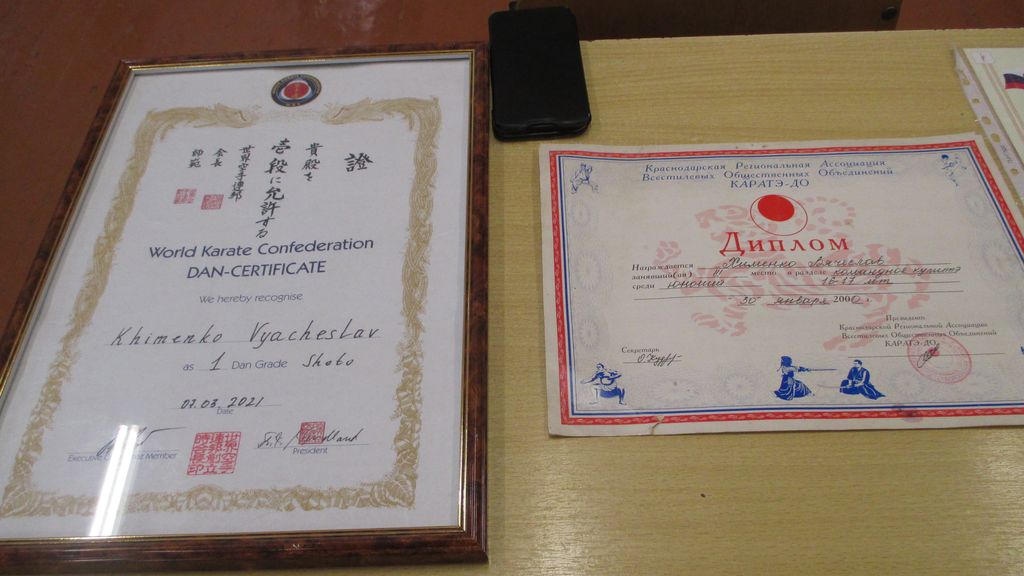 證
貴殿を
壱段に允許する
世界空手連邦
会長
師範
World Karate Confederation
DAN-CERTIFICATE
We hereby recognise
Khimenko Vyacheslav
as 1 Dan Grade Shobo
07.03.2021
Date
Executive Member
President
Краснодарская Региональная Ассоциация
Всестилевых Общественных Объединений
КАРАТЭ-ДО
ДИПЛОМ
Награждается Хименко Вячеслав
занявший(ая) III место в разделе командное кумитэ
среди юношей 16-17 лет
30 января 2000 г.
Президент
Краснодарской Региональной Ассоциации
Всестилевых Общественных Объединений
КАРАТЭ-ДО
Секретарь